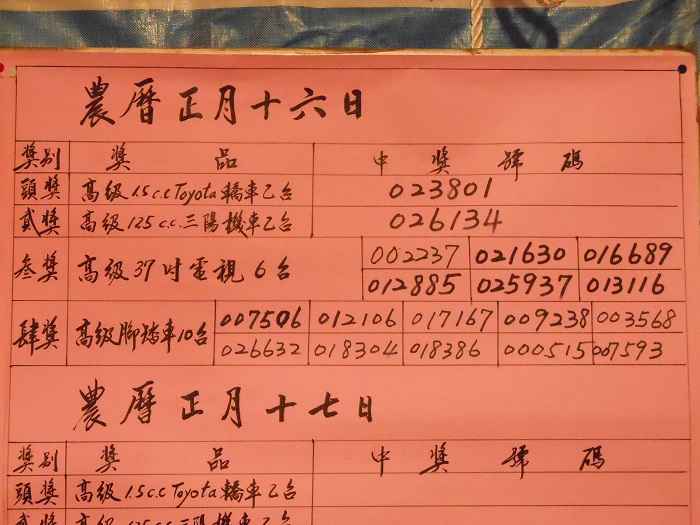 農曆正月十六日
獎別 獎品 中獎號碼
頭獎 高級1.5c.cToyota轎車乙台 023801
貳獎 高級125c.c.三陽機車乙台 026134
叁獎 高級37吋電視6台 002237 021630 016689
012885 025937 013116
肆獎 高級腳踏車10台 007506 012106 017167 009238 003568
026632 018304 018386 000515 007593
農曆正月十七日
獎别 獎品 中獎號碼
頭獎 高級1.5c.cToyota轎車乙台
貳獎 高級125c.c.三陽機車乙台